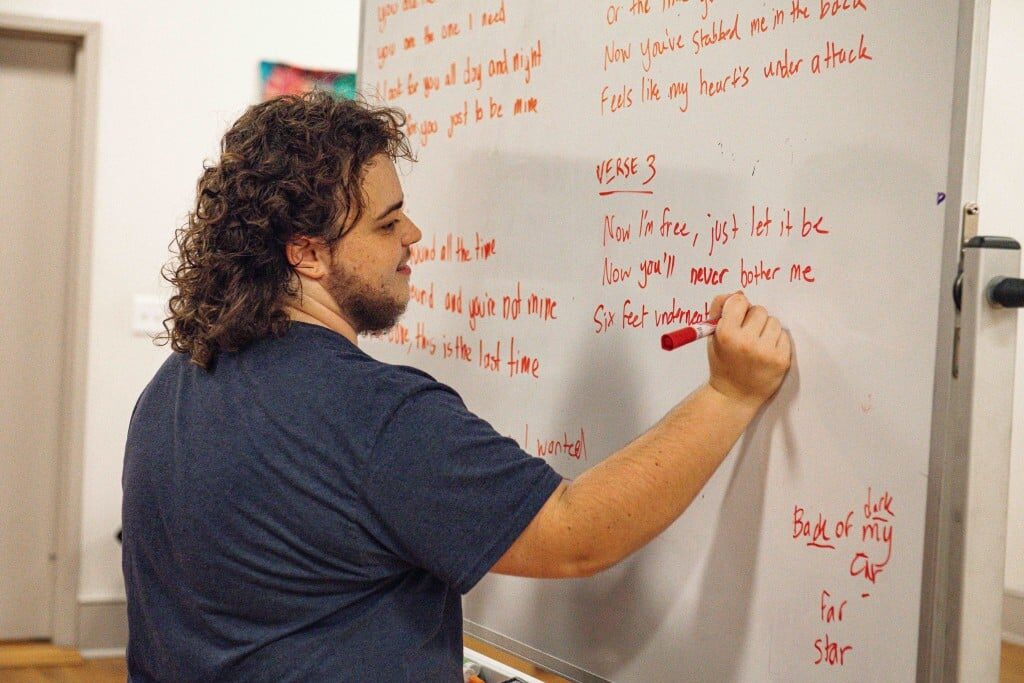 you are the one I need
for you all day and night
for you just to be mine
all the time
and you're not mine
this is the last time
I wanted
or the
Now you've stabbed me in the back
Feels like my heart's under attack
VERSE 3
Now I'm free, just let it be
Now you'll never bother me
Six feet
dark
Back of my
Car
far
star